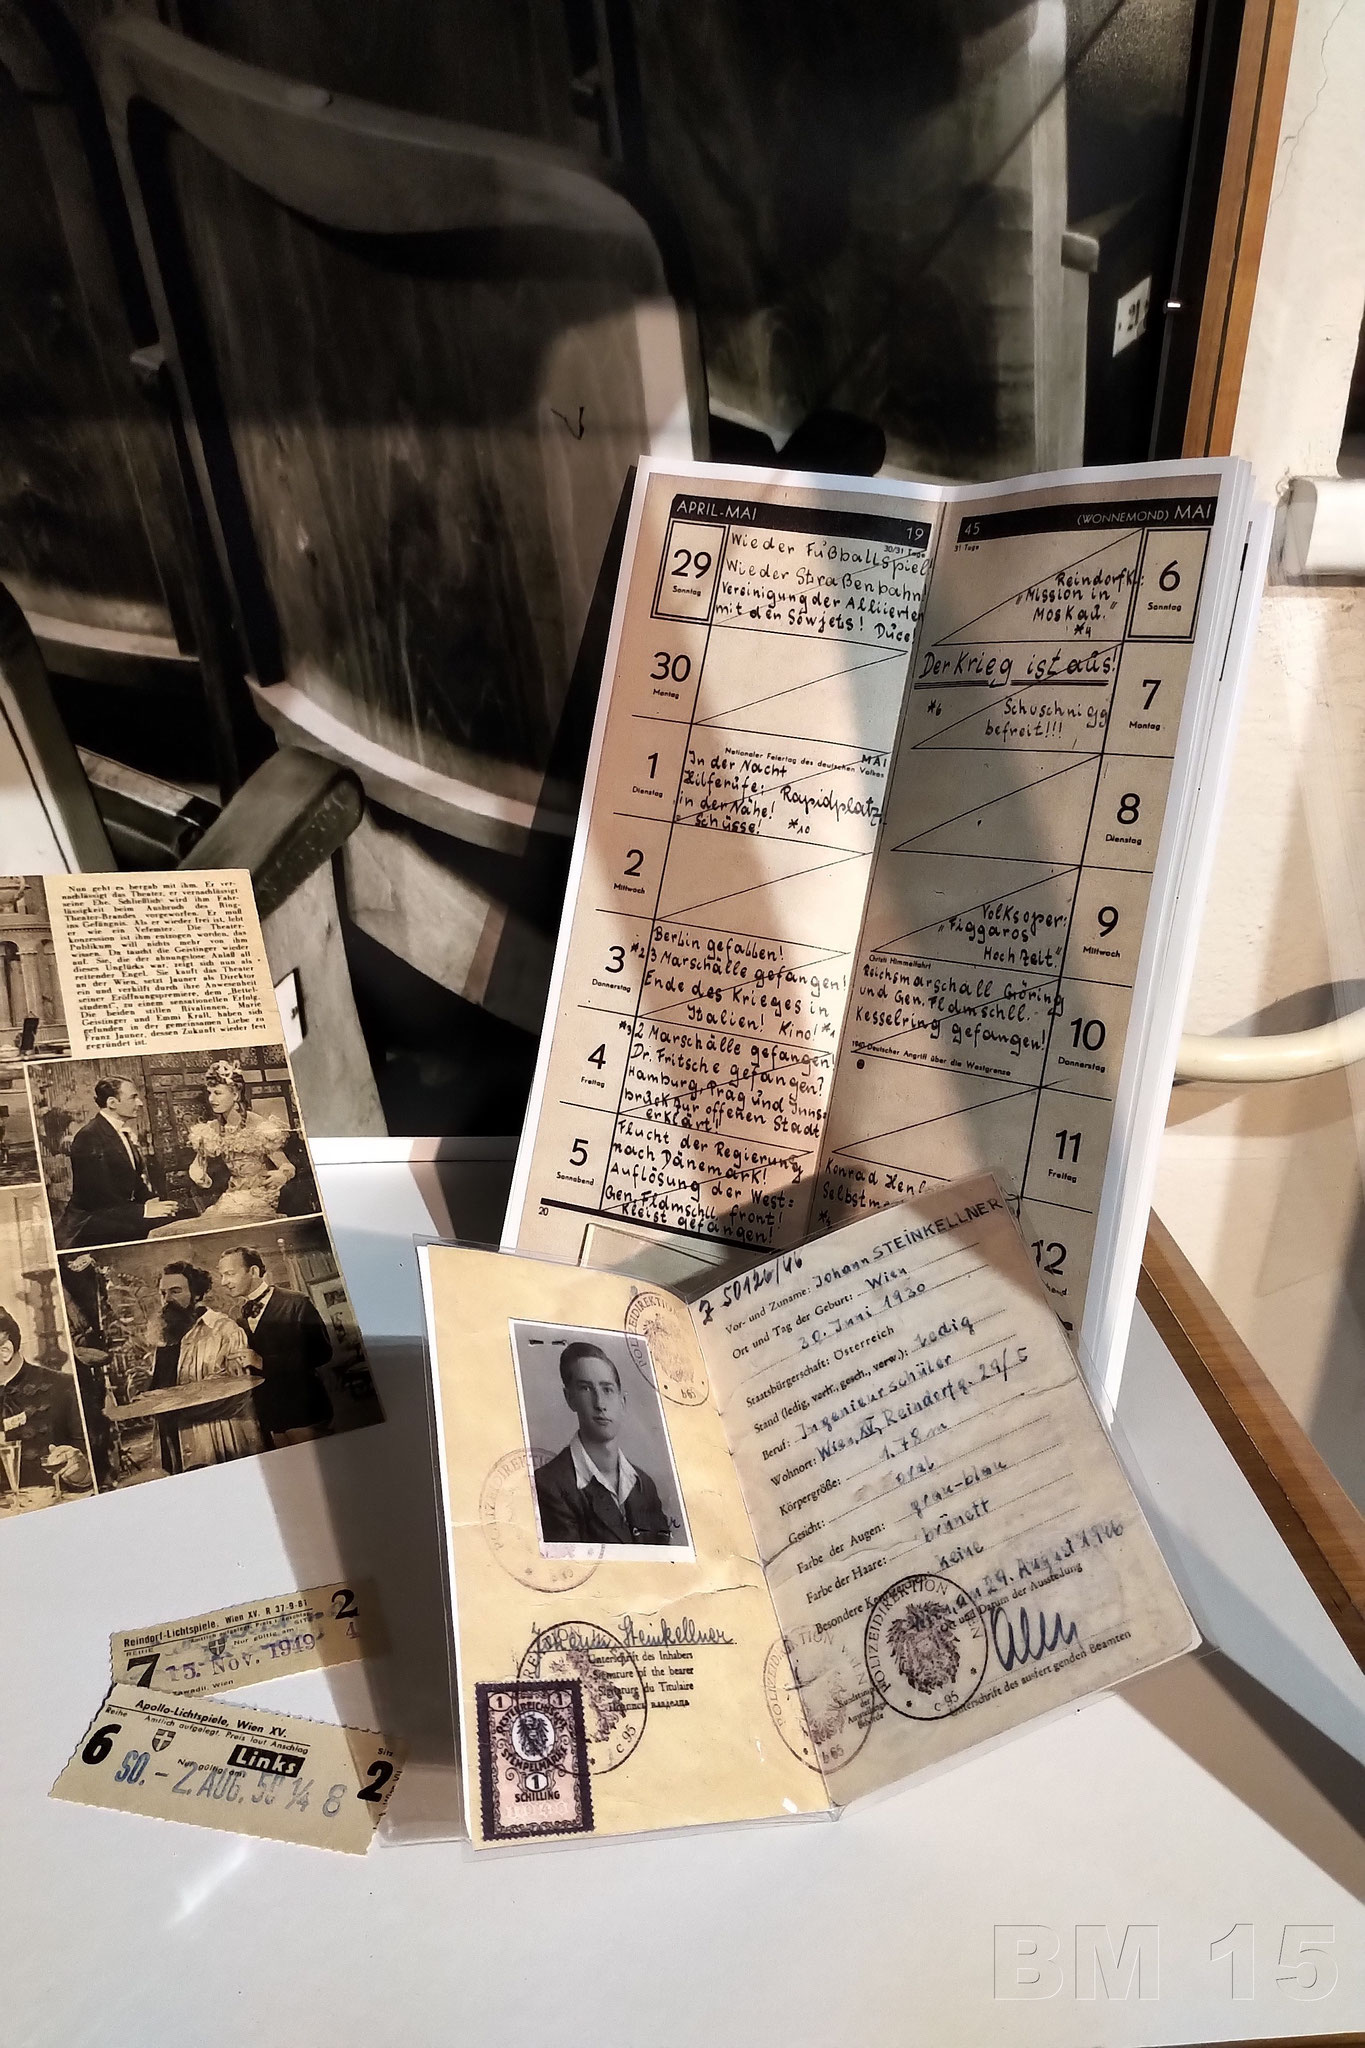 APRIL-MAI 19
29 Sonntag
30/31 Tage
Wieder Fußballspiel!
Wieder Straßenbahn!
Vereinigung der Alliierten
mit den Sowjets! Duce!
30 Montag
1 Dienstag
MAI
Nationaler Feiertag des deutschen Volkes
In der Nacht
Hilferufe: Rapidplatz!
in der Nähe!
Schüsse! *10
2 Mittwoch
3 Donnerstag
Berlin gefallen!
*2 3 Marschälle gefangen!
Ende des Krieges in
Italien! Kino!
4 Freitag
2 Marschälle gefangen!
Dr. Fritsche gefangen?
Hamburg, Prag und Inns=
bruck zur offenen Stadt
erklärt!
5 Sonnabend
Flucht der Regierung
nach Dänemark!
Auflösung der West=
front!
Gen. Fldmschll.
Kleist gefangen!
20
45 (WONNEMOND) MAI
31 Tage
6 Sonntag
Reindorfk.:
"Mission in
Moskau."
*4
7 Montag
Der Krieg ist aus!
*6 Schuschnigg
befreit!!!
8 Dienstag
9 Mittwoch
Volksoper:
"Figgaros
Hochzeit."
Christi Himmelfahrt
10 Donnerstag
Reichsmarschall Göring
und Gen. Fldmschll.
Kesselring gefangen!
1940 Deutscher Angriff über die Westgrenze
11 Freitag
Konrad Henl
Selbstm
12
Nun geht es bergab mit ihm. Er ver-
nachlässigt das Theater, er vernachlässigt
seine Ehe. Schließlich wird ihm Fahr-
lässigkeit beim Ausbruch des Ring-
Theater-Brandes vorgeworfen. Er muß
ins Gefängnis. Als er wieder frei ist, lebt
er wie ein Verfemter. Die Theater-
konzession ist ihm entzogen worden, das
Publikum will nichts mehr von ihm
wissen. Da taucht die Geistinger wieder
auf. Sie, die der ahnungslose Anlaß all
dieses Unglücks war, zeigt sich nun als
rettender Engel. Sie kauft das Theater
an der Wien, setzt Jauner als Direktor
ein und verhilft durch ihre Anwesenheit
seiner Eröffnungspremiere, dem „Bettel-
student", zu einem sensationellen Erfolg.
Die beiden stillen Rivalinnen, Marie
Geistinger und Emmi Krall, haben sich
gefunden in der gemeinsamen Liebe zu
Franz Jauner, dessen Zukunft wieder fest
gegründet ist.
Z 50126/46
Vor- und Zuname: Johann STEINKELLNER
Ort und Tag der Geburt: Wien
30. Juni 1930
Staatsbürgerschaft: Österreich
Stand (ledig, verh., gesch., verw.): ledig
Beruf: Ingenieurschüler
Wohnort: Wien, XV, Reindorfg. 29/5
Körpergröße: 1.78 m
Gesicht: oval
Farbe der Augen: grau-blau
Farbe der Haare: brünett
Besondere Kennzeichen: keine
am 29. August 1946
Ort und Datum der Ausstellung
Unterschrift des ausfertigenden Beamten
POLIZEIDIREKTION
c 95
POLIZEIDIREKTION
b 65
POLIZEIDIREKTION
b 65
Steinkellner
Unterschrift des Inhabers
Signature of the bearer
Signature du Titulaire
Подпись владельца
c 95
b 65
1 1
ÖSTERREICHISCHE
STEMPELMARKE
1
SCHILLING
Reindorf-Lichtspiele, Wien XV. R 37-9-81
REIHE
7
Nur gültig am:
15. Nov. 1949
2
4
Apollo-Lichtspiele, Wien XV.
Reihe Amtlich aufgelegt. Preis laut Anschlag
6 Links Sitz
Nur gültig am:
SO. - 2. AUG. 50 ¼ 8 2
BM 15